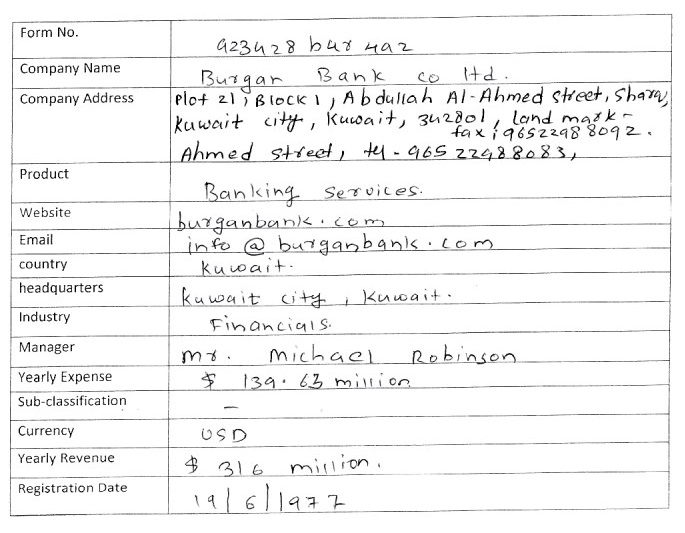 Form No.
923428 bur 492
Company Name
Burgan Bank co ltd.
Company Address
Plot 21, Block 1, Abdullah Al-Ahmed street, Sharq,
Kuwait city, Kuwait, 342801, land mark -
fax: 96522988092.
Ahmed street, tel - 965 22988083,
Product
Banking services.
Website
burganbank.com
Email
info @ burganbank.com
country
Kuwait.
headquarters
Kuwait city, Kuwait.
Industry
Financials.
Manager
mr. michael Robinson
Yearly Expense
$ 139.63 million
Sub-classification
–
Currency
USD
Yearly Revenue
$ 316 million.
Registration Date
19/6/1977